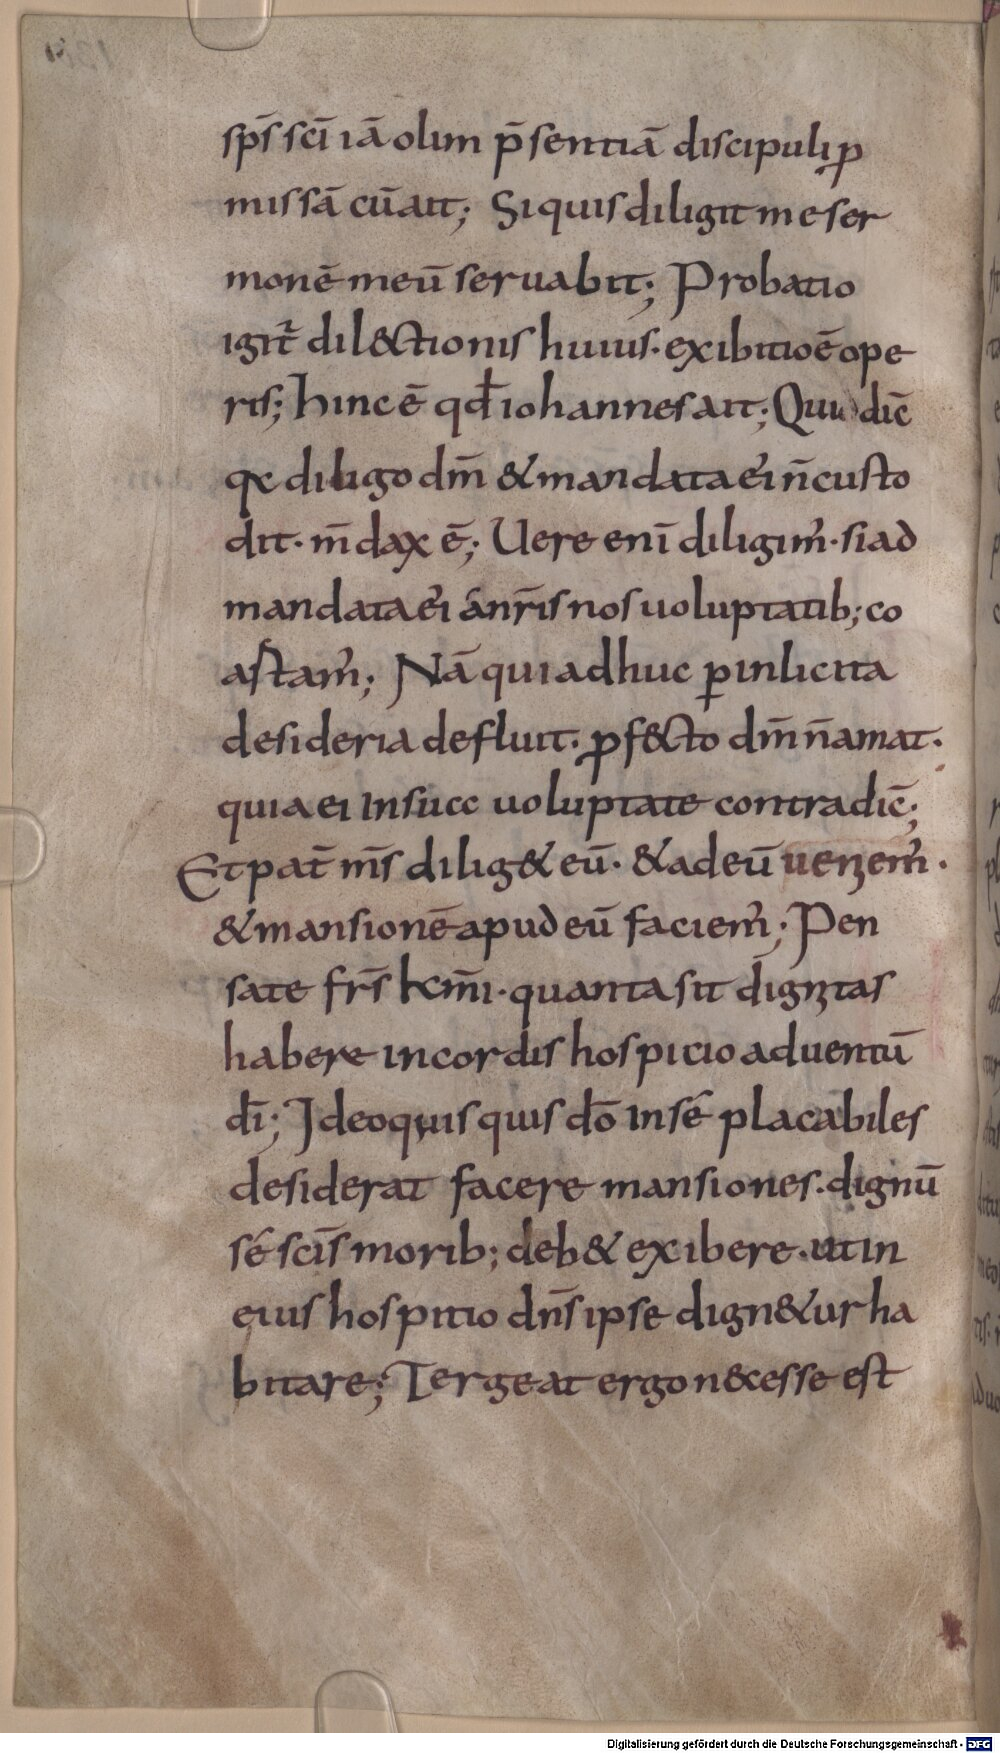 sp̄s sc̄i iā olim p̄sentiā discipuli ꝓ
missā cū ait; Si quis diligit me ser
monē meū seruabit; Probatio
igit̄ dil&ctionis huius· exibitio ē ope
ris; hinc ē qđ iohannes ait; Qui dic̄
qꝛ diligo dm̄ & mandata ei' n̄ custo
dit· m̄dax ē; Uere eni̅ diligim'· si ad
mandata ei' a nr̄is nos uoluptatib; co
astam'; Nā qui adhuc ꝑ inlicita
desideria defluit· ꝓf&cto dm̄ n̄ amat·
quia ei in sua uoluptate contradic̄;
Et pat̄ m̄s dilig& eū· & ad eū ueniem'·
& mansionē apud eū faciem'; Pen
sate fr̄s km̄i· quanta sit dignitas
habere in cordis hospicio aduentū
dī; Ideo quisquis dō in sé placabiles
desiderat facere mansiones· dignū
sé sc̄is morib; deb& exibere· ut in
eius hospitio dn̄s ipse dign&ur ha
bitare; Tergeat ergo n&cesse est
Digitalisierung gefördert durch die Deutsche Forschungsgemeinschaft - DFG